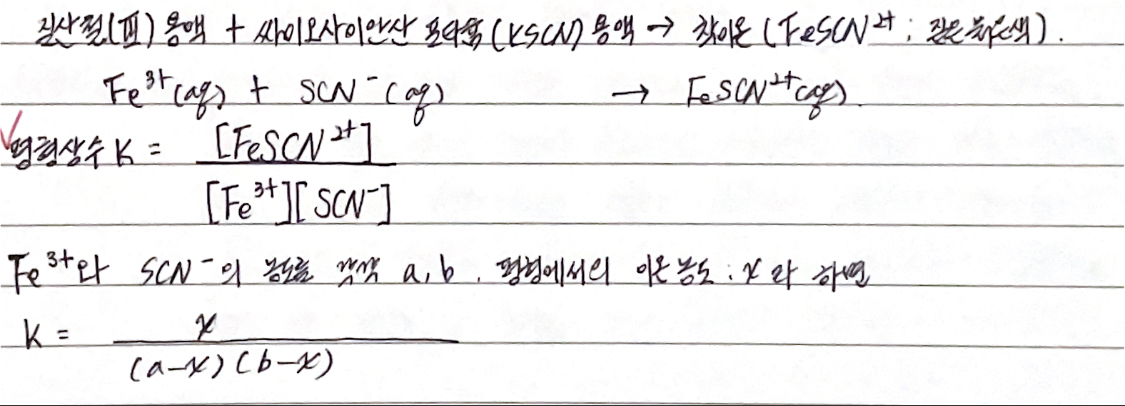 질산철(III) 용액 + 싸이오사이안산 포타슘(KSCN) 용액 → 착이온 (FeSCN²⁺ : 짙은 붉은색).
Fe³⁺(aq) + SCN⁻(aq) → FeSCN²⁺(aq)
평형상수 K = [FeSCN²⁺]
[Fe³⁺][SCN⁻]
Fe³⁺와 SCN⁻의 농도를 각각 a, b. 평형에서의 이온 농도 : x라 하면
K = x
(a-x)(b-x)